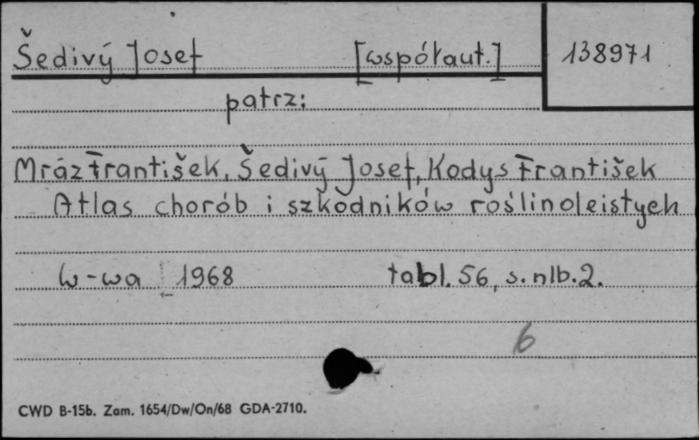 Šedivý Josef [współaut.] 138971
patrz:
Mráz František, Šedivý Josef, Kodys František
Atlas chorób i szkodników roślin oleistych
W-wa 1968 tabl. 56, s. nlb. 2.
6
CWD B-15b. Zam. 1654/Dw/On/68 GDA-2710.